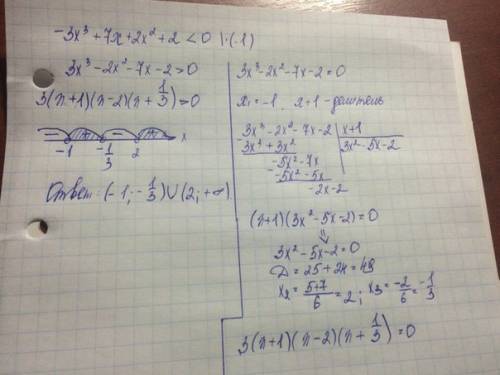 -3x³+7x+2x²+2<0 |·(-1)
3x³-2x²-7x-2>0
3(x+1)(x-2)(x+1/3)>0
- + - +
-1 -1/3 2 x
Ответ: (-1; -1/3)∪(2; +∞)
3x³-2x²-7x-2=0
x₁=-1, x+1 - делитель
3x³-2x²-7x-2 | x+1
3x³+3x² | 3x²-5x-2
-5x²-7x
-5x²-5x
-2x-2
(x+1)(3x²-5x-2)=0
⇓
3x²-5x-2=0
D=25+24=49
x₂=(5+7)/6=2; x₃=-2/6=-1/3
3(x+1)(x-2)(x+1/3)=0